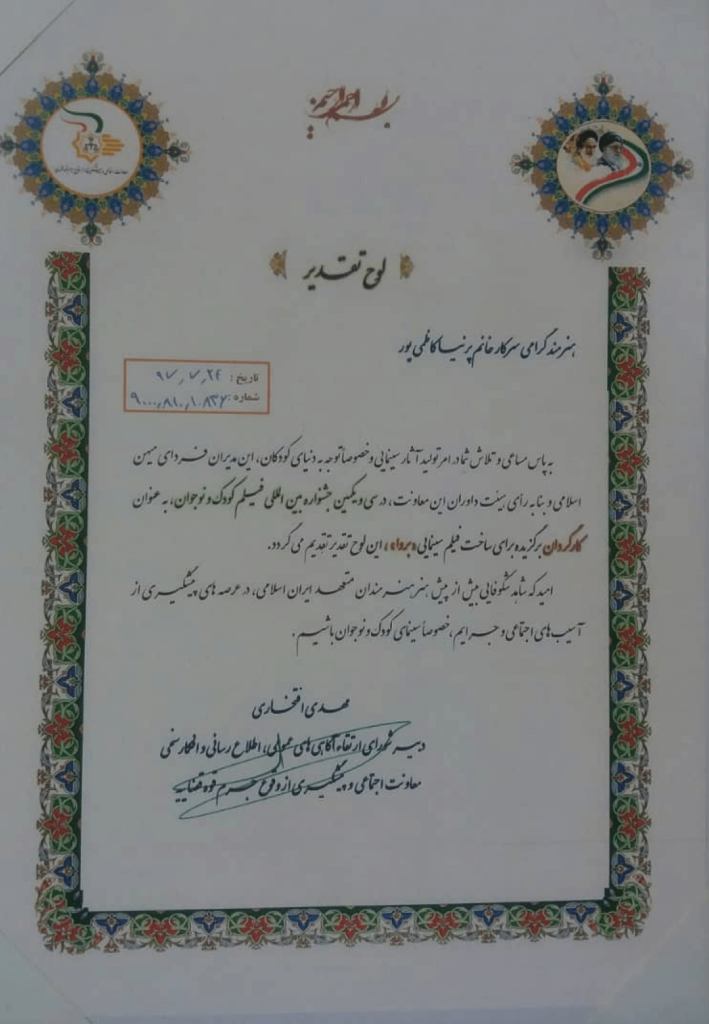 بسم الله الرحمن الرحیم
لوح تقدیر
هنرمند گرامی سرکار خانم پرنیا کاظمی پور
تاریخ : ۹۷٫۷٫۲۴
شماره : ۹۰۰۰٫۸۱۰٫۱۰۸۳۶
به پاس مساعی و تلاش شما در امر تولید آثار سینمایی و خصوصاً توجه به دنیای کودکان، این مدیران فردای میهن
اسلامی و بنا به رأی هیئت داوران این معاونت، در سی و یکمین جشنواره بین المللی فیلم کودک و نوجوان، به عنوان
کارگردان برگزیده برای ساخت فیلم سینمایی ، این لوح تقدیر تقدیم می گردد.
امید که شاهد شکوفایی بیش از پیش هنر هنرمندان متعهد ایران اسلامی، در عرصه های پیشگیری از
آسیب های اجتماعی و جرایم، خصوصاً سینمای کودک و نوجوان باشیم .
مهدی افتخاری
دبیر شورای ارتقاء آگاهی های عمومی، اطلاع رسانی و افکارسنجی
معاونت اجتماعی و پیشگیری از وقوع جرم قوه قضاییه